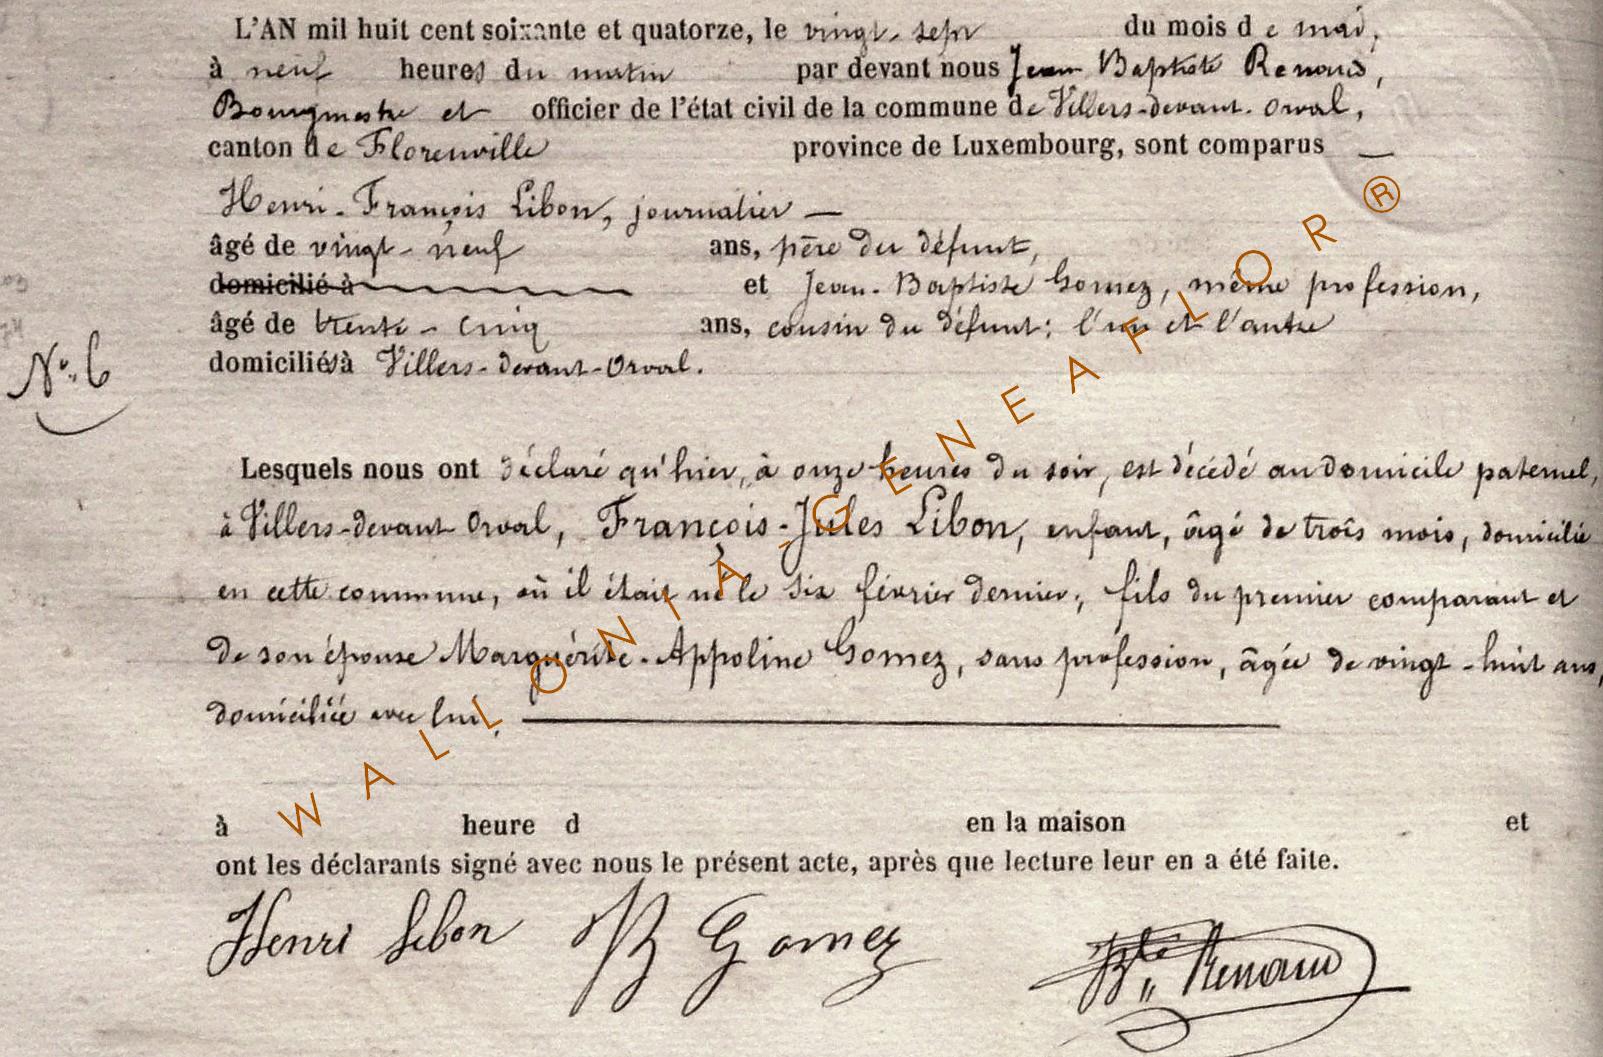 L'AN mil huit cent soixante et quatorze, le vingt-sept du mois de mai,
à neuf heures du matin par devant nous Jean Baptiste Renaud,
Bourgmestre et officier de l'état civil de la commune de Villers-devant-Orval,
canton de Florenville province de Luxembourg, sont comparus —
Henri-François Libon, journalier —
âgé de vingt-neuf ans, père du défunt,
domicilié à et Jean-Baptiste Gomez, même profession,
âgé de trente-cinq ans, cousin du défunt; l'un et l'autre
domiciliés à Villers-devant-Orval.
N° 6
Lesquels nous ont déclaré qu'hier, à onze heures du soir, est décédé au domicile paternel,
à Villers-devant Orval, François-Jules Libon, enfant, âgé de trois mois, domicilié
en cette commune, où il était né le six février dernier; fils du premier comparant et
de son épouse Marguérite-Appoline Gomez, sans profession, âgée de vingt-huit ans,
domiciliée avec lui.
à heure d en la maison et
ont les déclarants signé avec nous le présent acte, après que lecture leur en a été faite.
Henri Libon JB Gomez Bte Renaud
WALLONIA-GENEAFLOR®